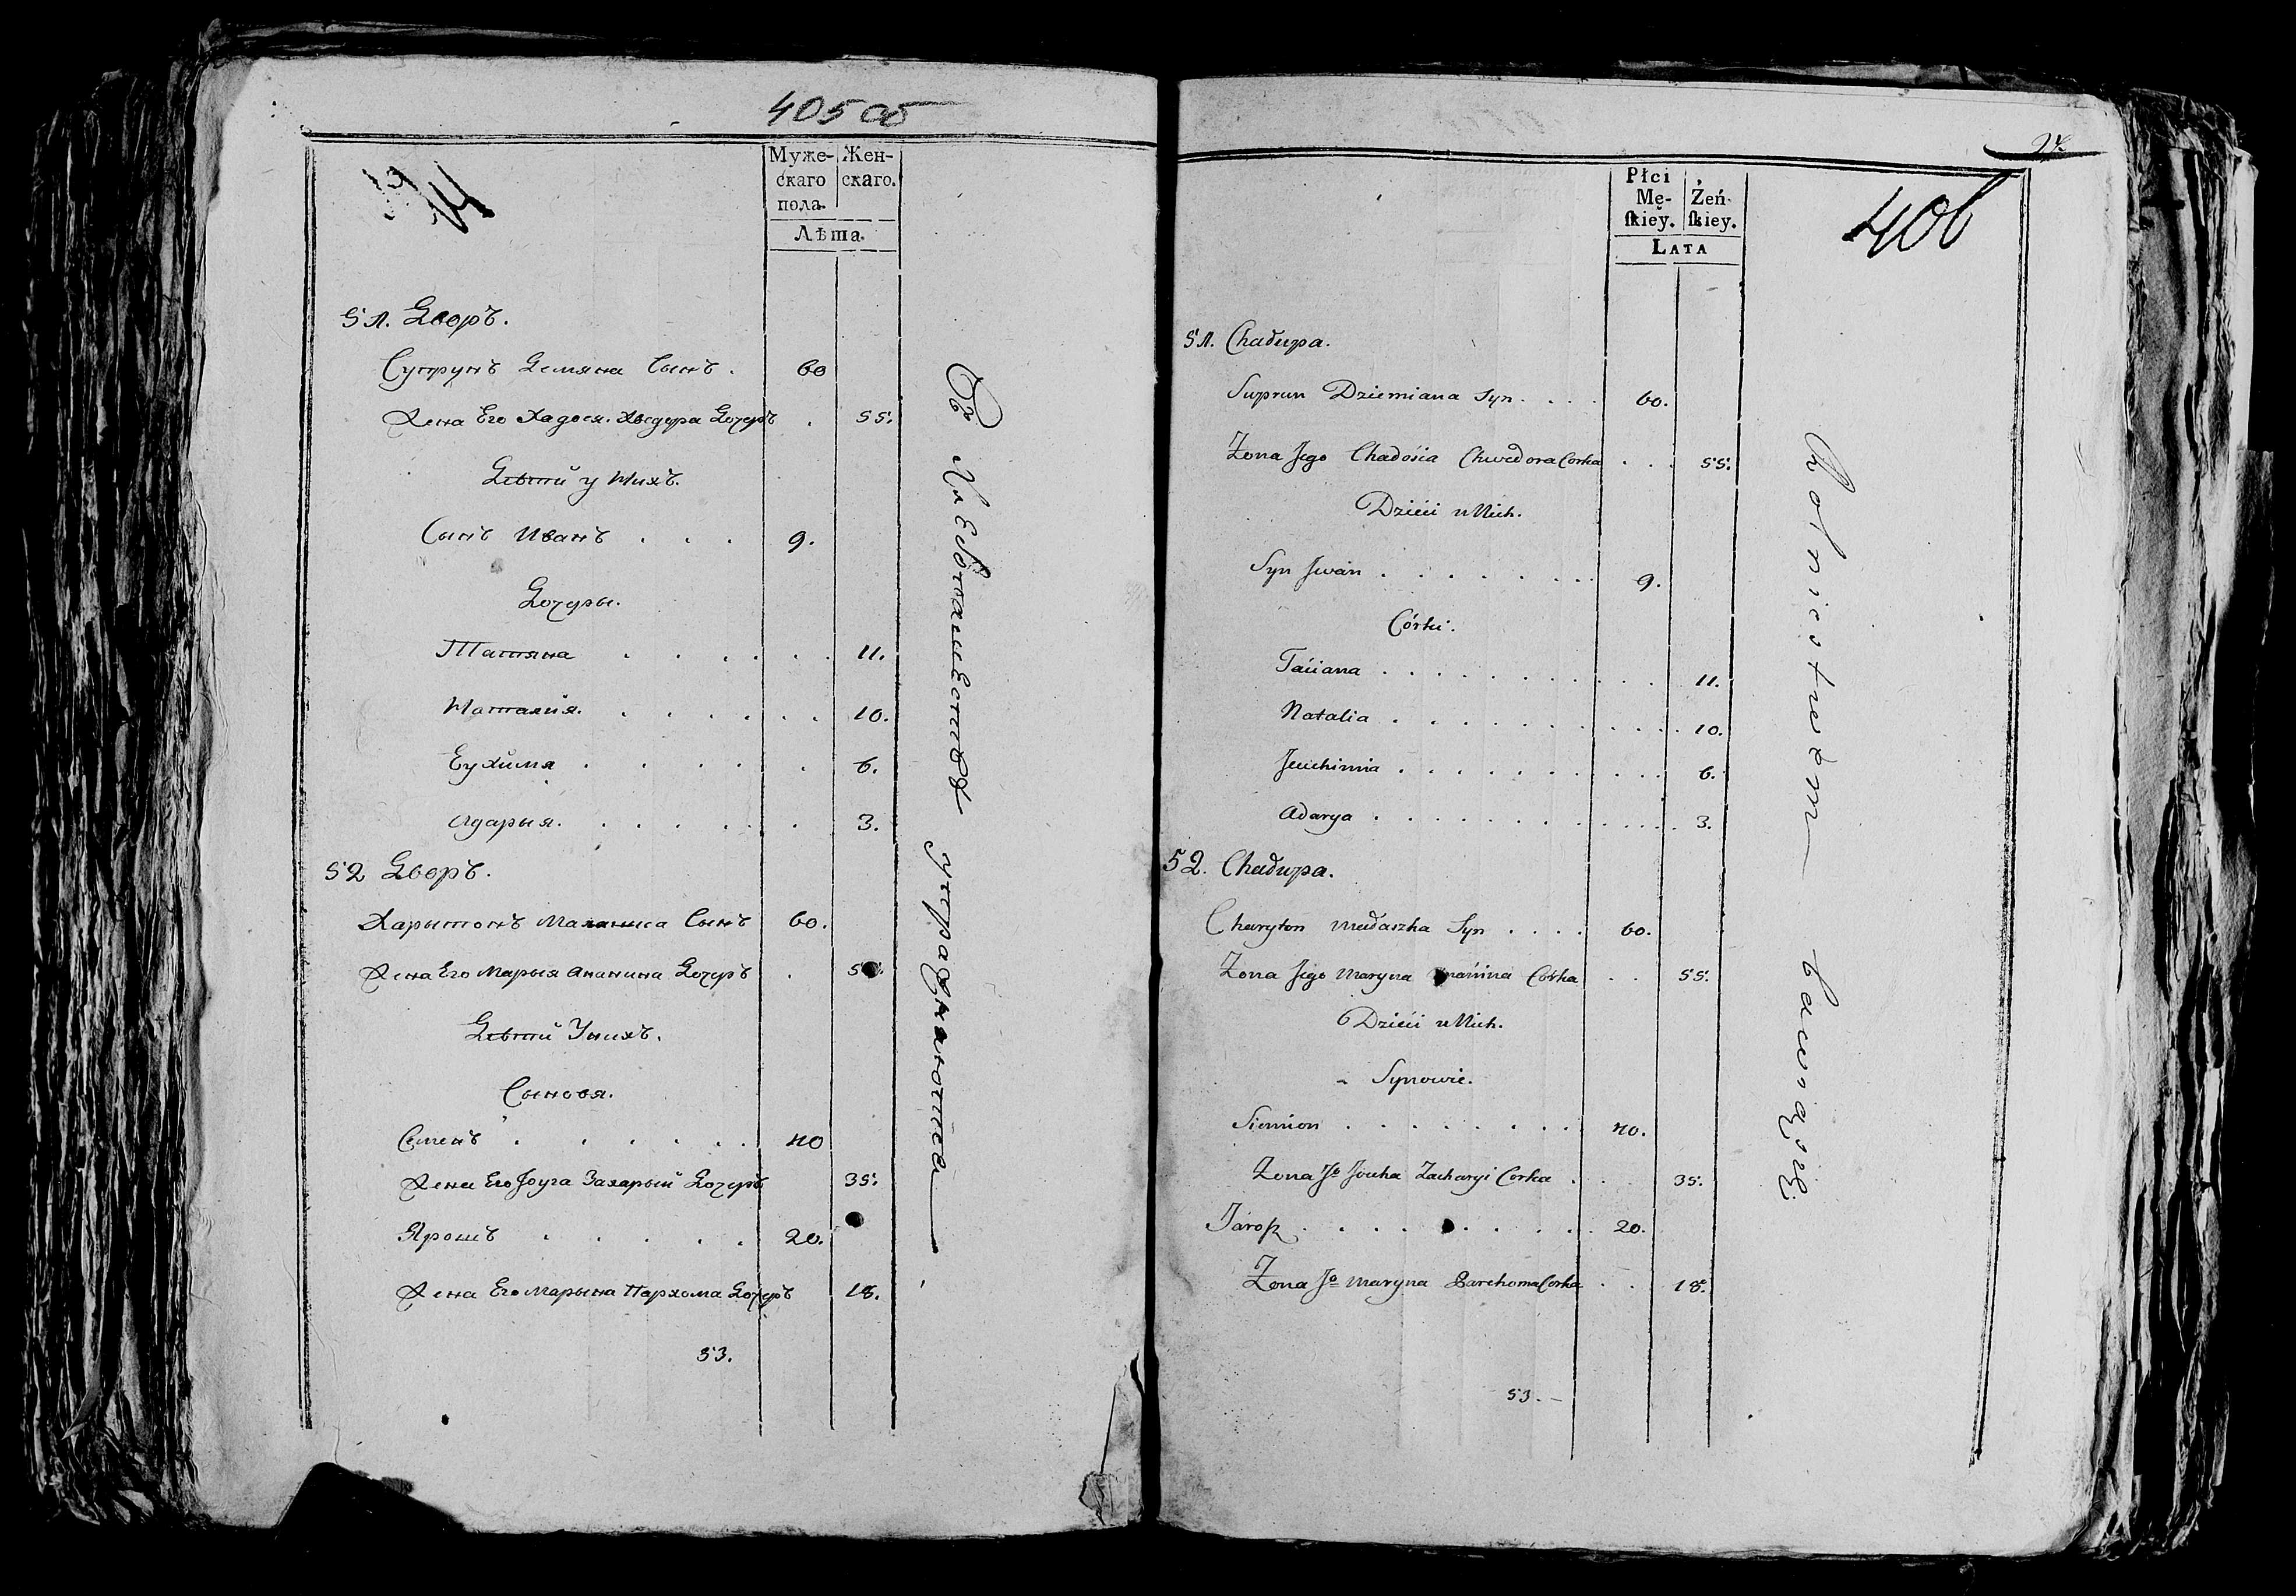 405 об
Муже-
скаго
пола.
Жен-
скаго.
Лѣта.
51. Дворъ.
Супрунъ Демяна Сынъ . 60
Жена Его Хадося Хведора Дочеръ . 55.
Дѣтій у Нихъ.
Сынъ Иванъ . . . 9.
Дочеры.
Татяна . . . . . . 11.
Наталія . . . . . . 10.
Еухимя . . . . . 6.
Адарыя . . . . . . 3.
52 Дворъ.
Харытонъ Сынъ 60.
Жена Его Марыя Ананина Дочеръ .
Дѣтій Унихъ.
Сыновя.
Семенъ . . . . . . 40
Жена Его Захарый Дочеръ 35.
Ярошъ . . . . . 20.
Жена Его Марына Пархома Дочеръ 18.
53.
Въ Хлебопашествѣ упражняются
406
Płci
Mę-
ſkiey.
Żeń-
ſkiey.
LATA
51. Chałupa.
Suprun Dziemiana Syn . . . . 60.
Żona Jego Chadośia Chwedora Corka . . . 55.
Dzieći u Nich.
Syn Jwan . . . . . . . . 9.
Córki.
Taciana . . . . . . . . . . . 11.
Natalia . . . . . . . . . . . 10.
Jeuchimia . . . . . . . . . . 6.
Adarya . . . . . . . . . . . . 3.
52. Chałupa.
Charyton Syn . . . . 60.
Żona Jego Maryna Corka . . 55.
Dzieći u Nich.
Synowie.
Siemion . . . . . . . . 40.
Żona Jo Zacharyi Corka . . . 35.
Jarosz . . . . . . . . . 20.
Żona Jo Maryna Parchoma Corka . . 18.
53. –
Rolnictwem bawią się